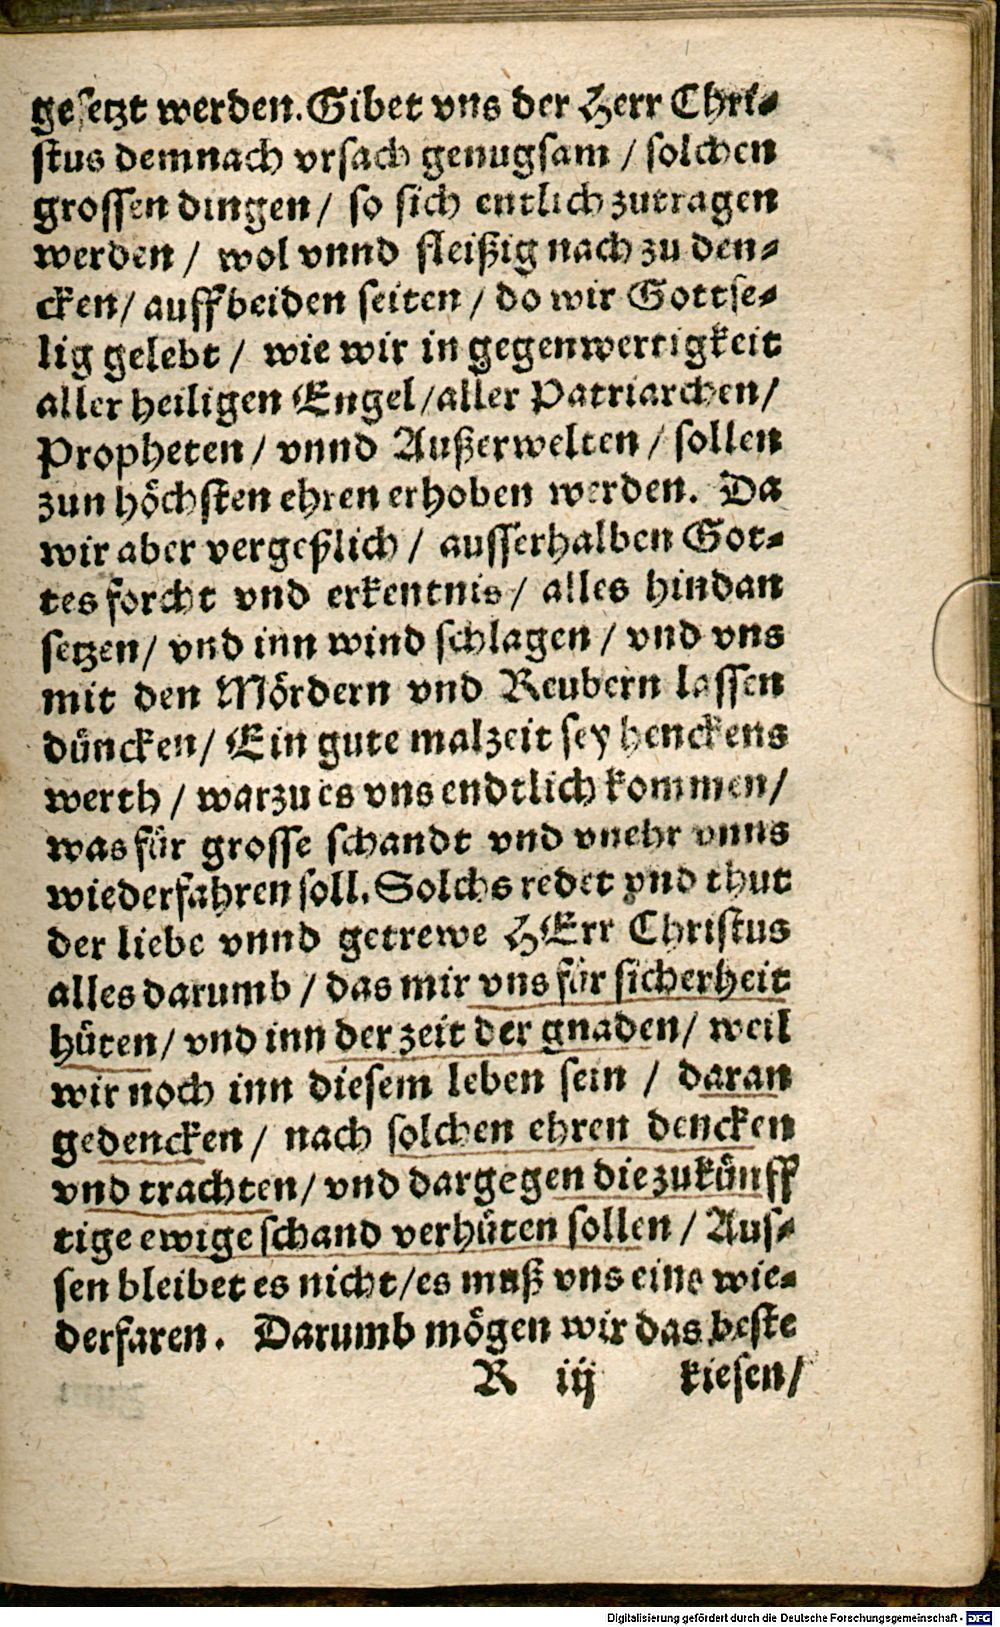 gesetzt werden. Gibet vns der Herr Chri⸗
stus demnach vrsach genugsam / solchen
grossen dingen / so sich entlich zutragen
werden / wol vnnd fleißig nach zu den⸗
cken / auff beiden seiten / do wir Gottse⸗
lig gelebt / wie wir in gegenwertigkeit
aller heiligen Engel / aller Patriarchen /
Propheten / vnnd Außerwelten / sollen
zun höchsten ehren erhoben werden. Da
wir aber vergeßlich / ausserhalben Got⸗
tes forcht vnd erkentnis / alles hindan
setzen / vnd inn wind schlagen / vnd vns
mit den Mördern vnd Reubern lassen
düncken / Ein gute malzeit sey henckens
werth / warzu es vns endtlich kommen /
was für grosse schandt vnd vnehr vnns
wiederfahren soll. Solchs redet vnd thut
der liebe vnnd getrewe HErr Christus
alles darumb / das mir vns für sicherheit
hüten / vnd inn der zeit der gnaden / weil
wir noch inn diesem leben sein / daran
gedencken / nach solchen ehren dencken
vnd trachten / vnd dargegen die zukünff
tige ewige schand verhüten sollen / Aus⸗
sen bleibet es nicht / es muß vns eins wie⸗
derfaren. Darumb mögen wir das beste
R iij kiesen /
Digitalisierung gefördert durch die Deutsche Forschungsgemeinschaft - DFG